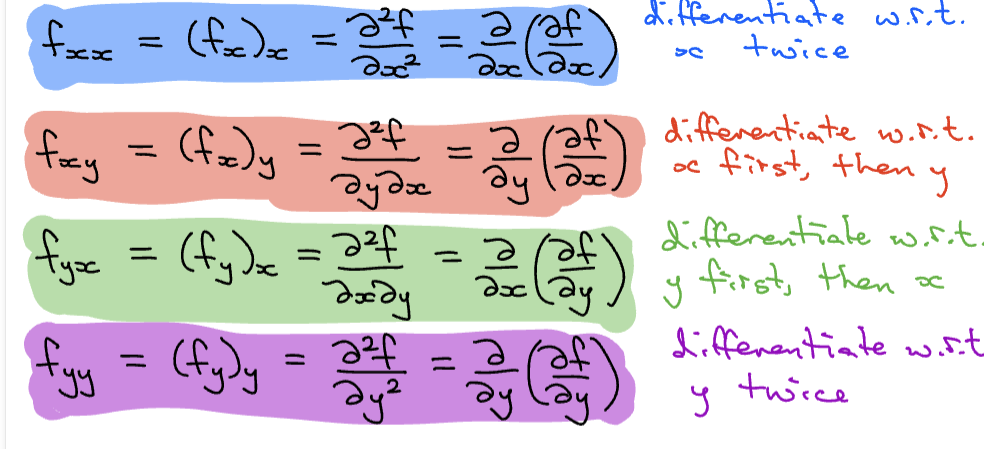 fₓₓ = (fₓ)ₓ = ∂²f/∂x² = ∂/∂x (∂f/∂x) differentiate w.r.t.
x twice
f_xy = (fₓ)_y = ∂²f/∂y∂x = ∂/∂y (∂f/∂x) differentiate w.r.t.
x first, then y
f_yx = (f_y)ₓ = ∂²f/∂x∂y = ∂/∂x (∂f/∂y) differentiate w.r.t.
y first, then x
f_yy = (f_y)_y = ∂²f/∂y² = ∂/∂y (∂f/∂y) differentiate w.r.t
y twice